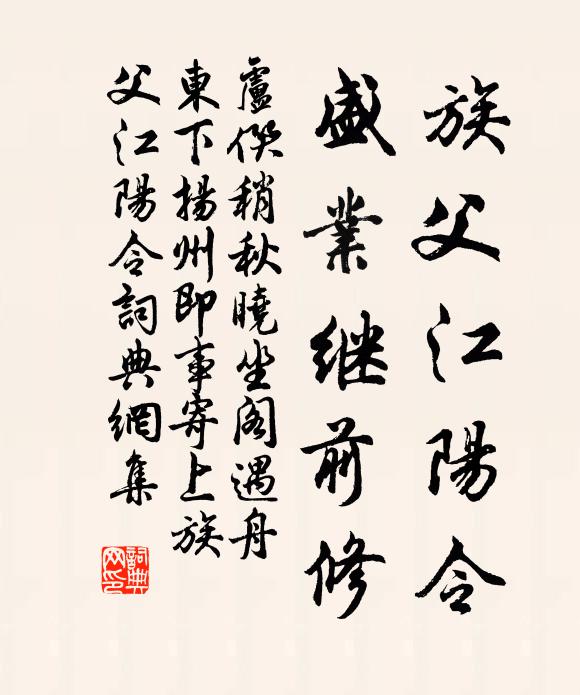 族父江陽令
盛業继前修
盧僎稍秋曉坐阁遇舟
東下揚州即事寄上族
父江陽令詞典網集
詞典网印